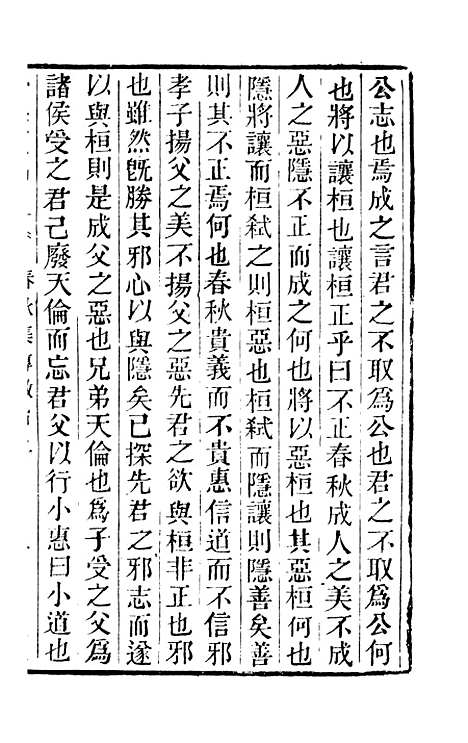 公志也焉成之言君之不取爲公也君之不取爲公何
也將以讓桓也讓桓正乎曰不正春秋成人之美不成
人之惡隱不正而成之何也將以惡桓也其惡桓何也
隱將讓而桓弑之則桓惡也桓弑而隱讓則隱善矣善
則其不正焉何也春秋貴義而不貴惠信道而不信邪
孝子揚父之美不揚父之惡先君之欲與桓非正也邪
也雖然旣勝其邪心以與隱矣已探先君之邪志而遂
以與桓則是成父之惡也兄弟天倫也爲子受之父爲
諸侯受之君己廢天倫而忘君父以行小惠曰小道也
春秋集傳